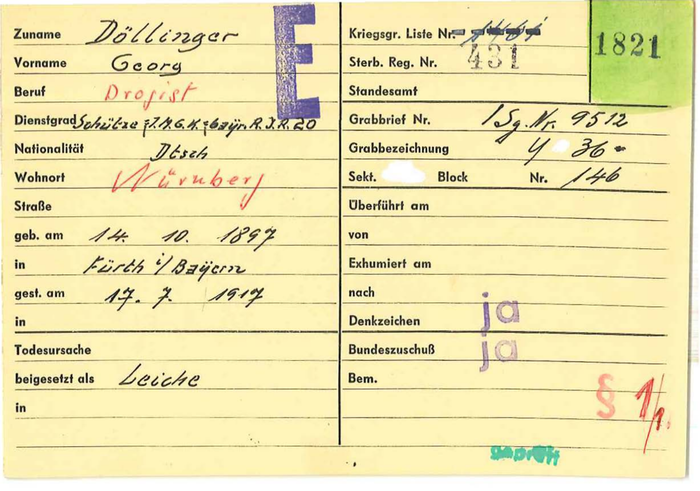 Zuname Döllinger
Vorname Georg
Beruf Drogist
Dienstgrad Schütze
Nationalität Dtsch
Wohnort Nürnberg
Straße
geb. am 14. 10. 1897
in Fürth i/Bayern
gest. am 17. 7. 1917
in
Todesursache
beigesetzt als Leiche
in
E
Kriegsgr. Liste Nr.
Sterb. Reg. Nr. 431
Standesamt
1821
Grabbrief Nr. Sg. Nr. 9512
Grabbezeichnung 36
Sekt. Block Nr. 146
Überführt am
von
Exhumiert am
nach
Denkzeichen ja
Bundeszuschuß ja
Bem.
§ 1/1.
geprüft